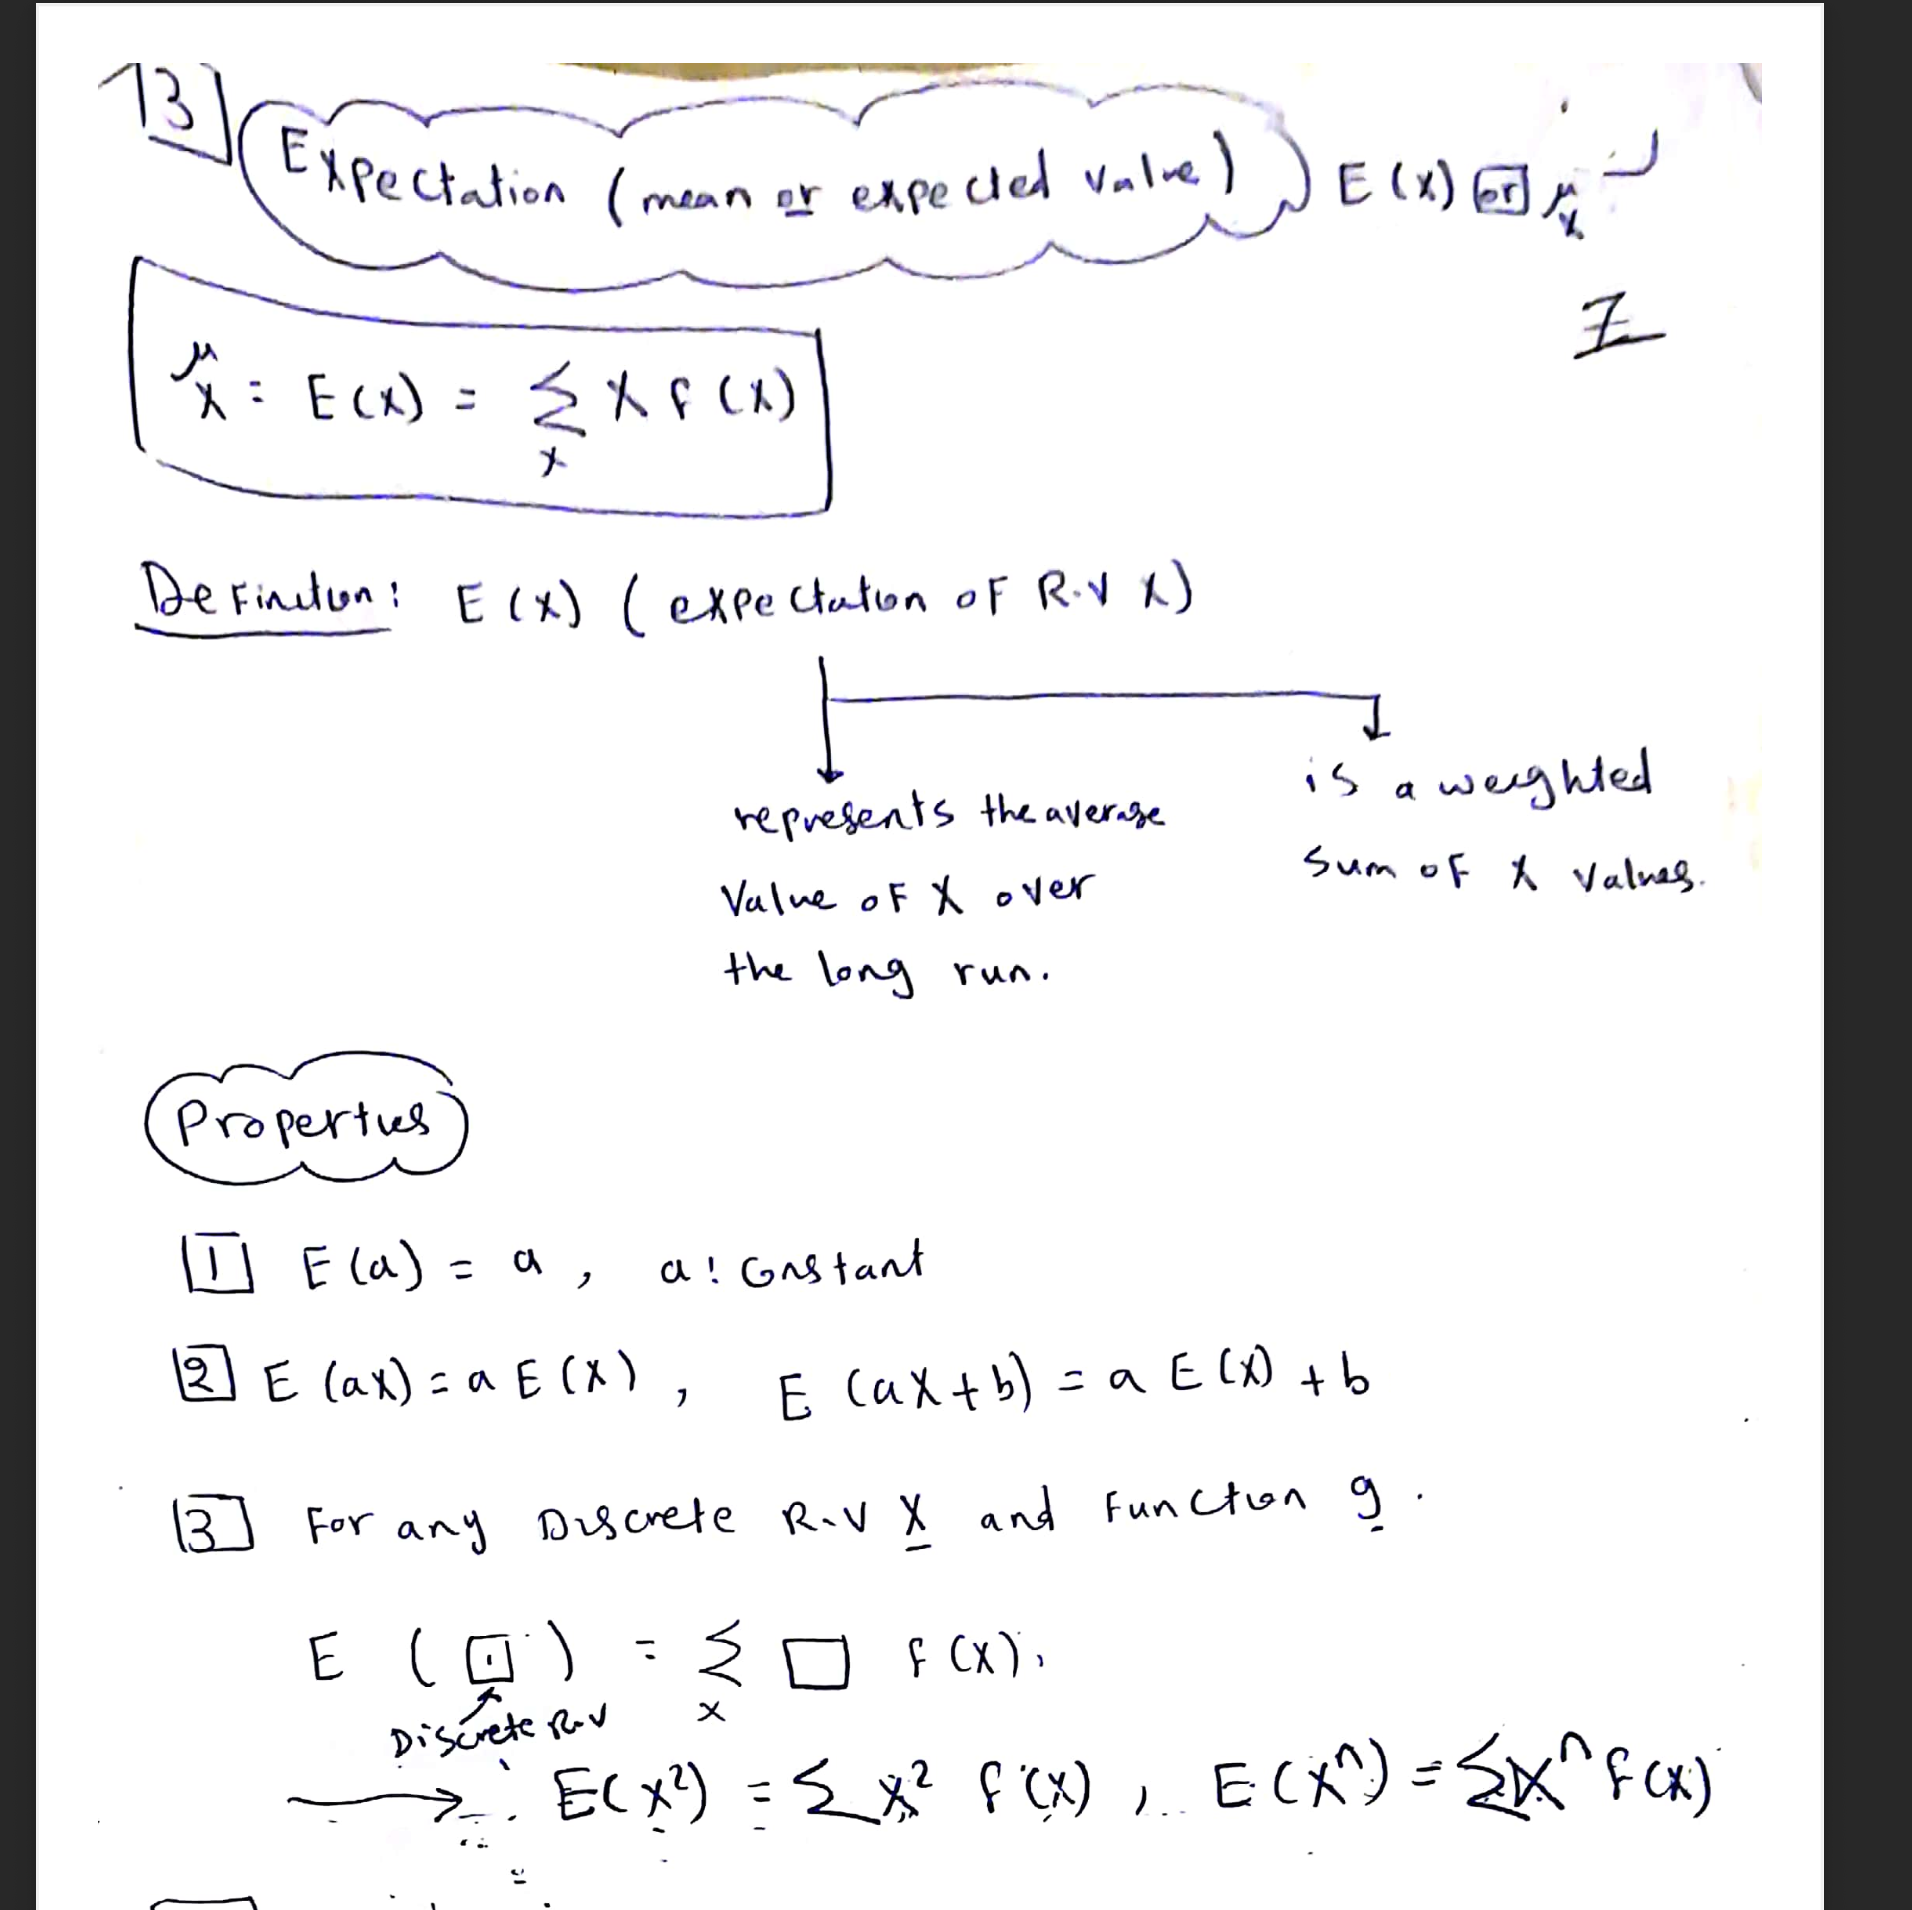 13
Expectation (mean or expected value) E(x) or μx
μx = E(x) = Σx x f(x)
Definition: E(x) (expectation of R.V X)
represents the average
Value of X over
the long run.
is a weighted
sum of X values.
Properties
1 E(a) = a , a: Constant
2 E(ax) = a E(x) , E(ax+b) = a E(x) + b
3 For any Discrete R.V X and Function g.
E (□) = Σx □ f(x).
Discrete R.V
→ E(x²) = Σ x² f(x) , E(xⁿ) = Σ xⁿ f(x)